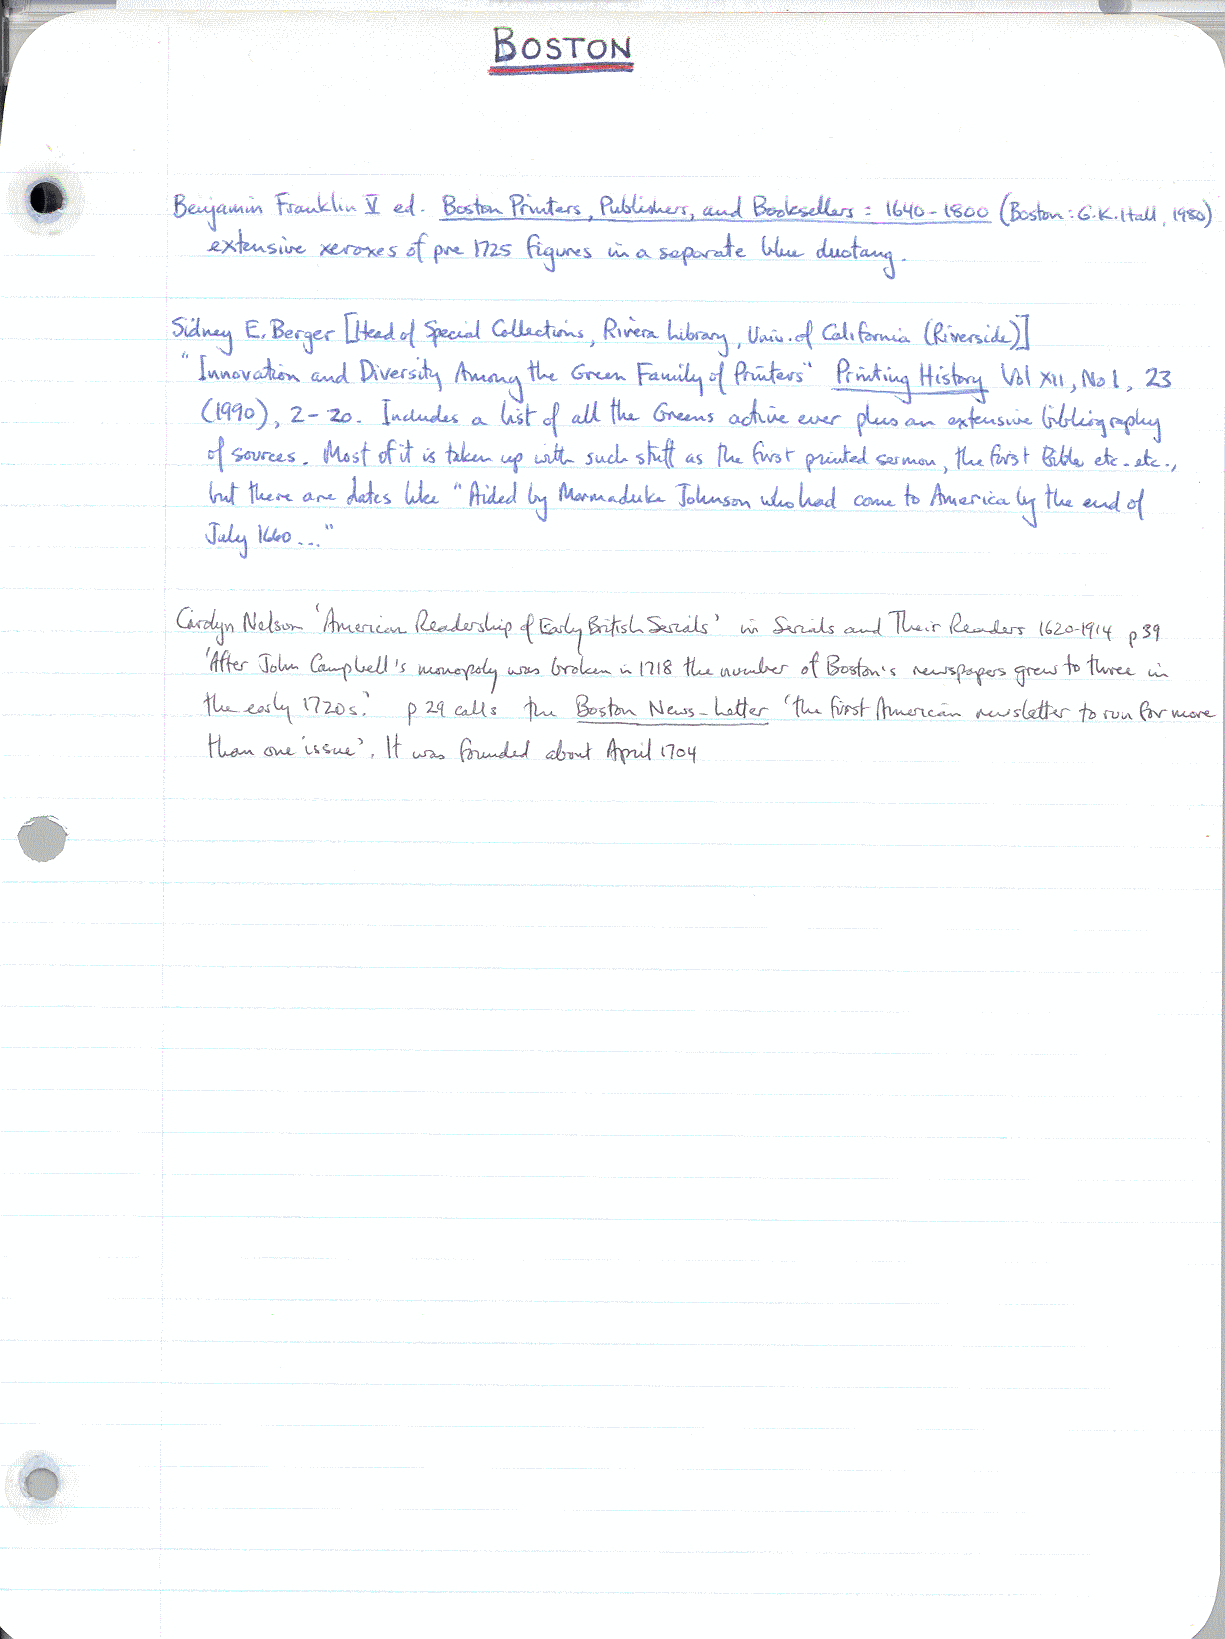 BOSTON
Benjamin Franklin V ed. Boston Printers, Publishers, and Booksellers : 1640-1800 (Boston: G.K. Hall, 1980)
extensive xeroxes of pre 1725 figures in a separate blue duotang.
Sidney E. Berger [Head of Special Collections, Rivera Library, Univ. of California (Riverside)]
"Innovation and Diversity Among the Green Family of Printers" Printing History Vol XII, No 1, 23
(1990), 2-20. Includes a list of all the Greens active ever plus an extensive bibliography
of sources. Most of it is taken up with such stuff as the first printed sermon, the first Bible etc. etc.,
but there are dates like "Aided by Marmaduke Johnson who had come to America by the end of
July 1660..."
Carolyn Nelson 'American Readership of Early British Serials' in Serials and Their Readers 1620-1914 p39
'After John Campbell's monopoly was broken in 1718 the number of Boston's newspapers grew to three in
the early 1720s.' p 29 calls the Boston News-Letter 'the first American newsletter to run for more
than one issue'. It was founded about April 1704